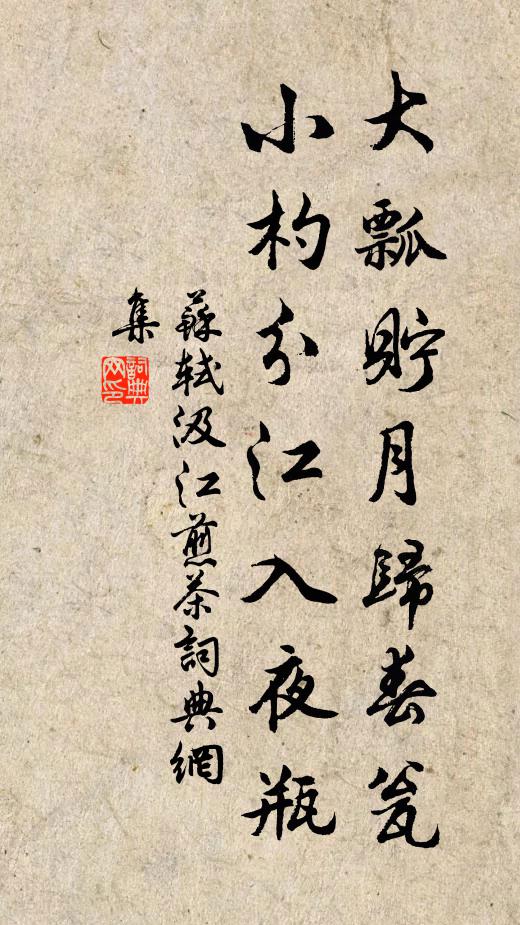 大瓢貯月歸春瓮
小杓分江入夜瓶
蘇軾汲江煎茶詞典網
集
詞典网印